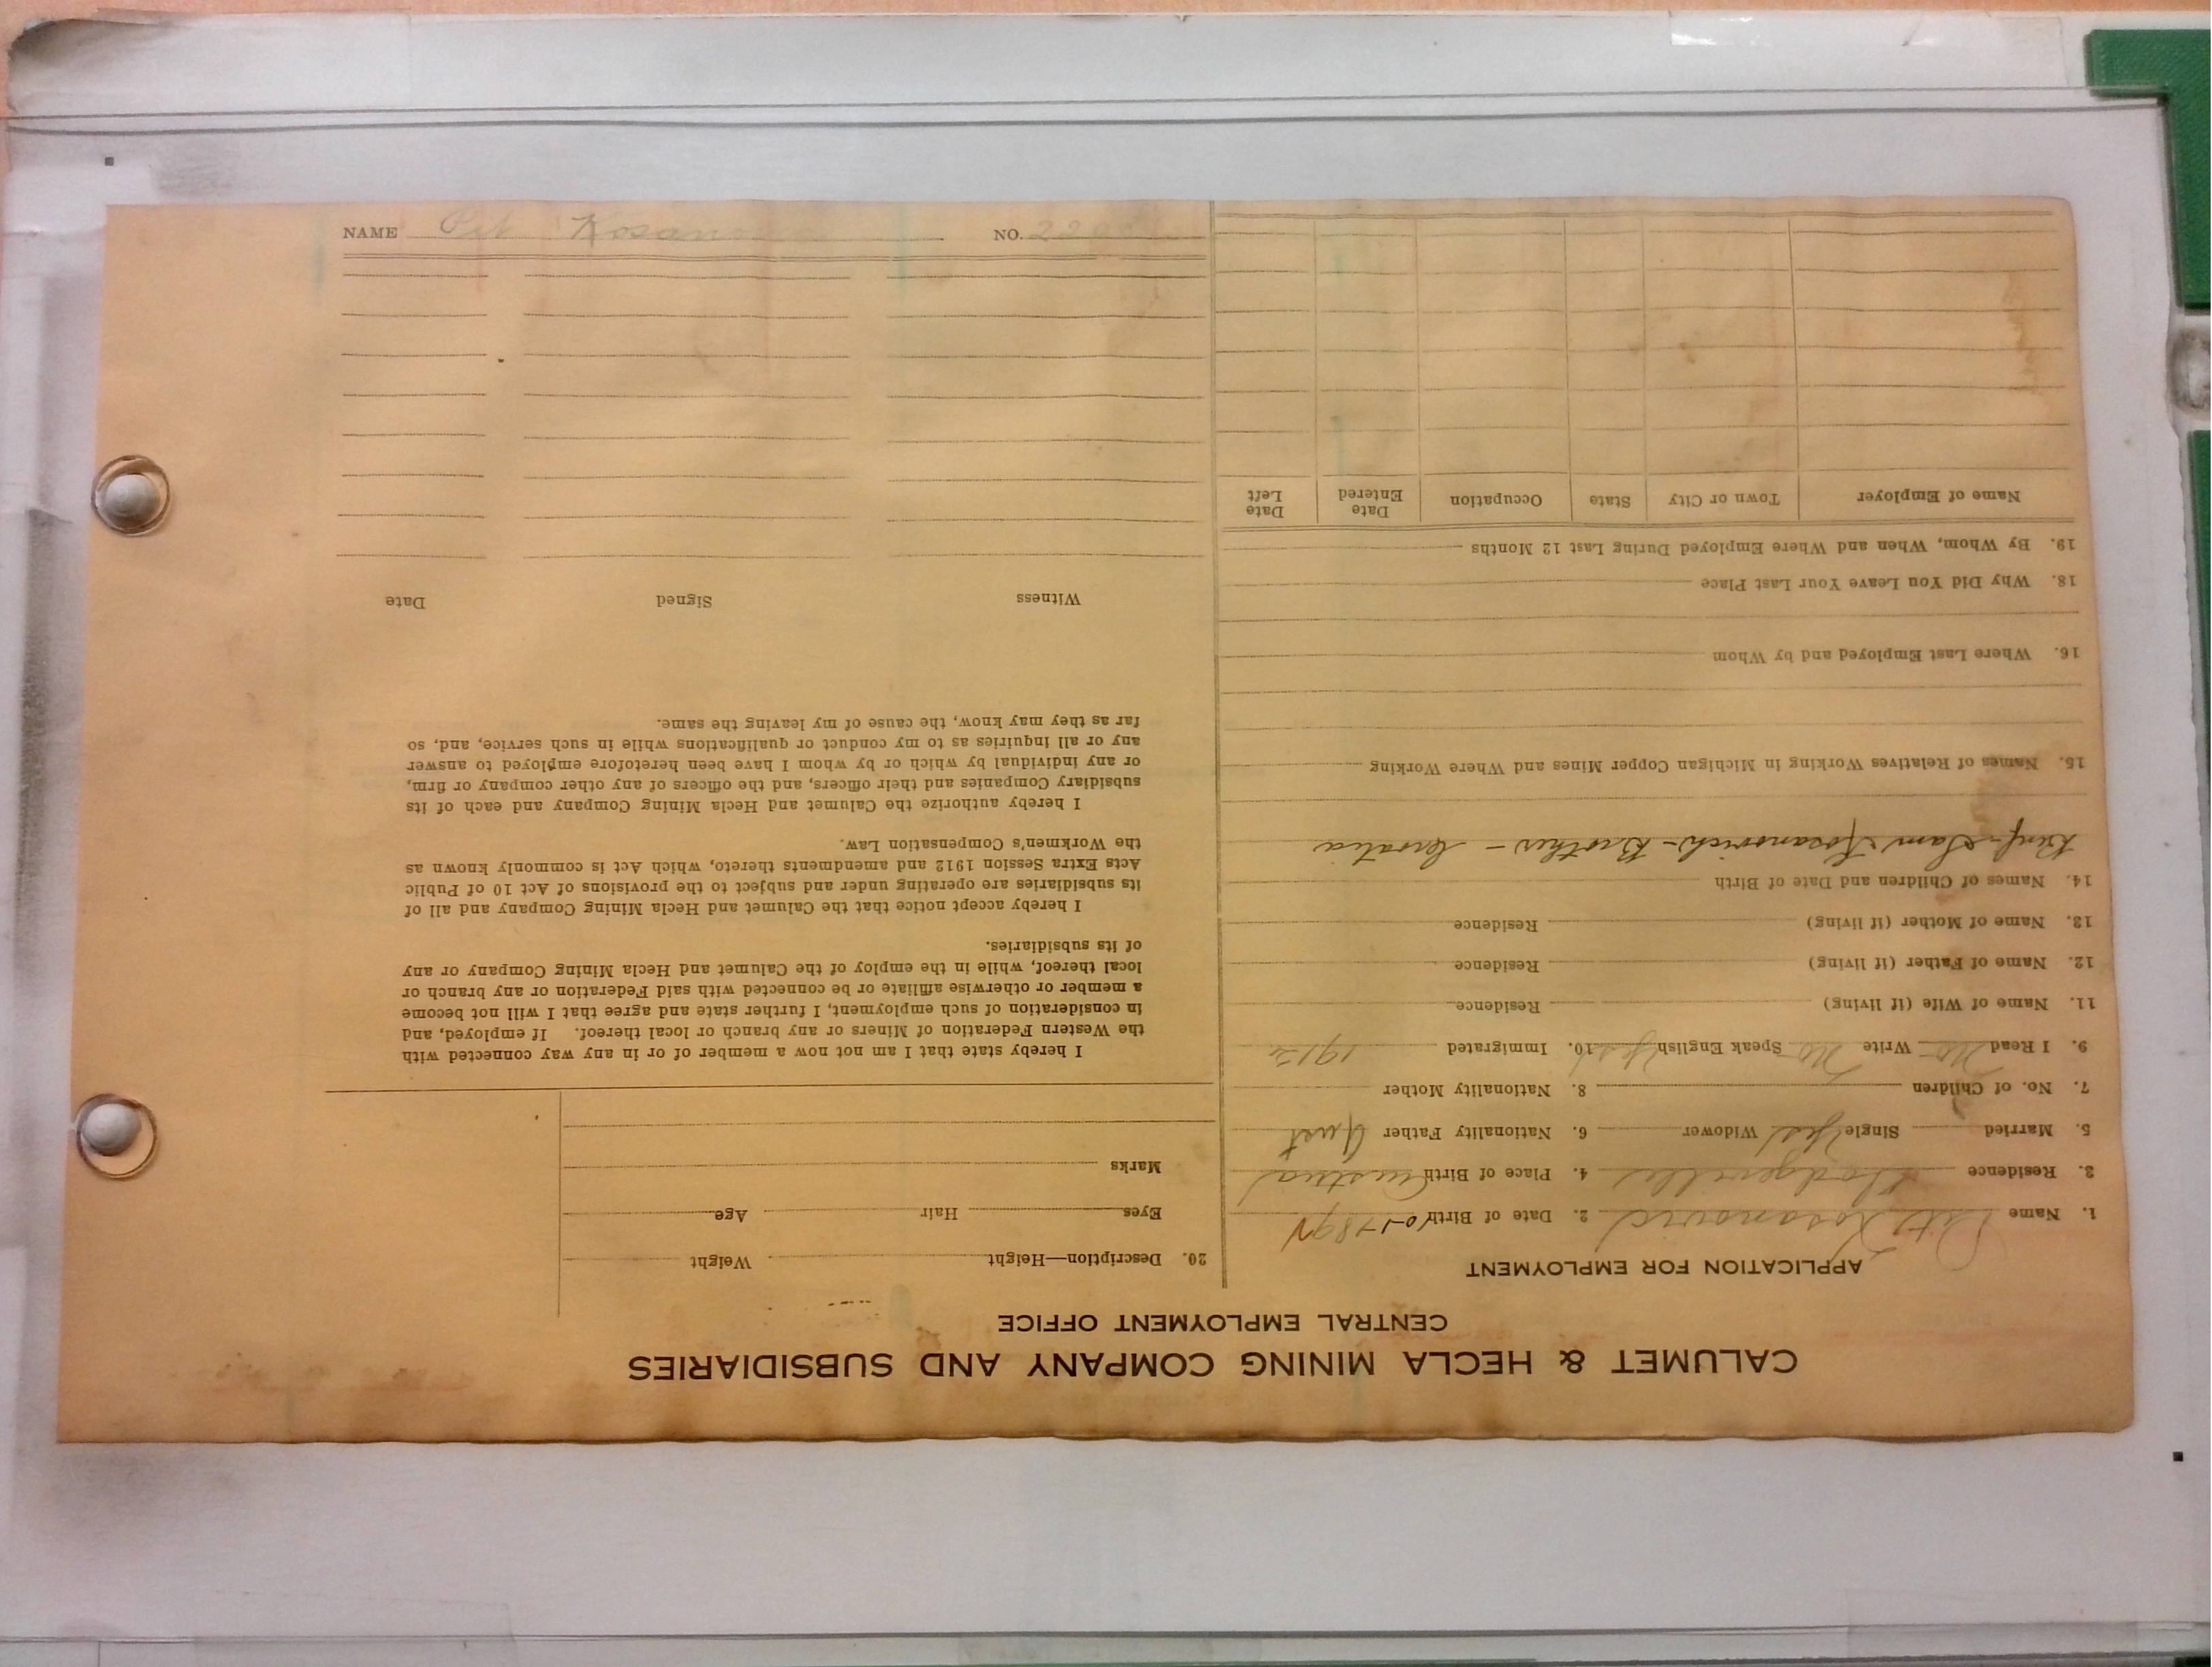 CALUMET & HECLA MINING COMPANY AND SUBSIDIARIES
CENTRAL EMPLOYMENT OFFICE
APPLICATION FOR EMPLOYMENT
1. Name Pete Kosanovich 2. Date of Birth 10-1-189
3. Residence Dodgeville 4. Place of Birth Austria
5. Married Single Yes Widower 6. Nationality Father Aust
7. No. of Children 8. Nationality Mother
9. I Read No Write No Speak English Yes 10. Immigrated 1912
11. Name of Wife (if living) Residence
12. Name of Father (if living) Residence
13. Name of Mother (if living) Residence
14. Names of Children and Date of Birth
Benf - Sam Kosanovich - Brother - Croatia
15. Names of Relatives Working in Michigan Copper Mines and Where Working
16. Where Last Employed and by Whom
18. Why Did You Leave Your Last Place
19. By Whom, When and Where Employed During Last 12 Months
Name of Employer Town or City State Occupation Date Entered Date Left
20. Description—Height Weight
Eyes Hair Age
Marks
I hereby state that I am not now a member of or in any way connected with
the Western Federation of Miners or any branch or local thereof. If employed, and
in consideration of such employment, I further state and agree that I will not become
a member or otherwise affiliate or be connected with said Federation or any branch or
local thereof, while in the employ of the Calumet and Hecla Mining Company or any
of its subsidiaries.
I hereby accept notice that the Calumet and Hecla Mining Company and all of
its subsidiaries are operating under and subject to the provisions of Act 10 of Public
Acts Extra Session 1912 and amendments thereto, which Act is commonly known as
the Workmen's Compensation Law.
I hereby authorize the Calumet and Hecla Mining Company and each of its
subsidiary Companies and their officers, and the officers of any other company or firm,
or any individual by which or by whom I have been heretofore employed to answer
any or all inquiries as to my conduct or qualifications while in such service, and, so
far as they may know, the cause of my leaving the same.
Witness Signed Date
NAME Pet Kosano NO. 220